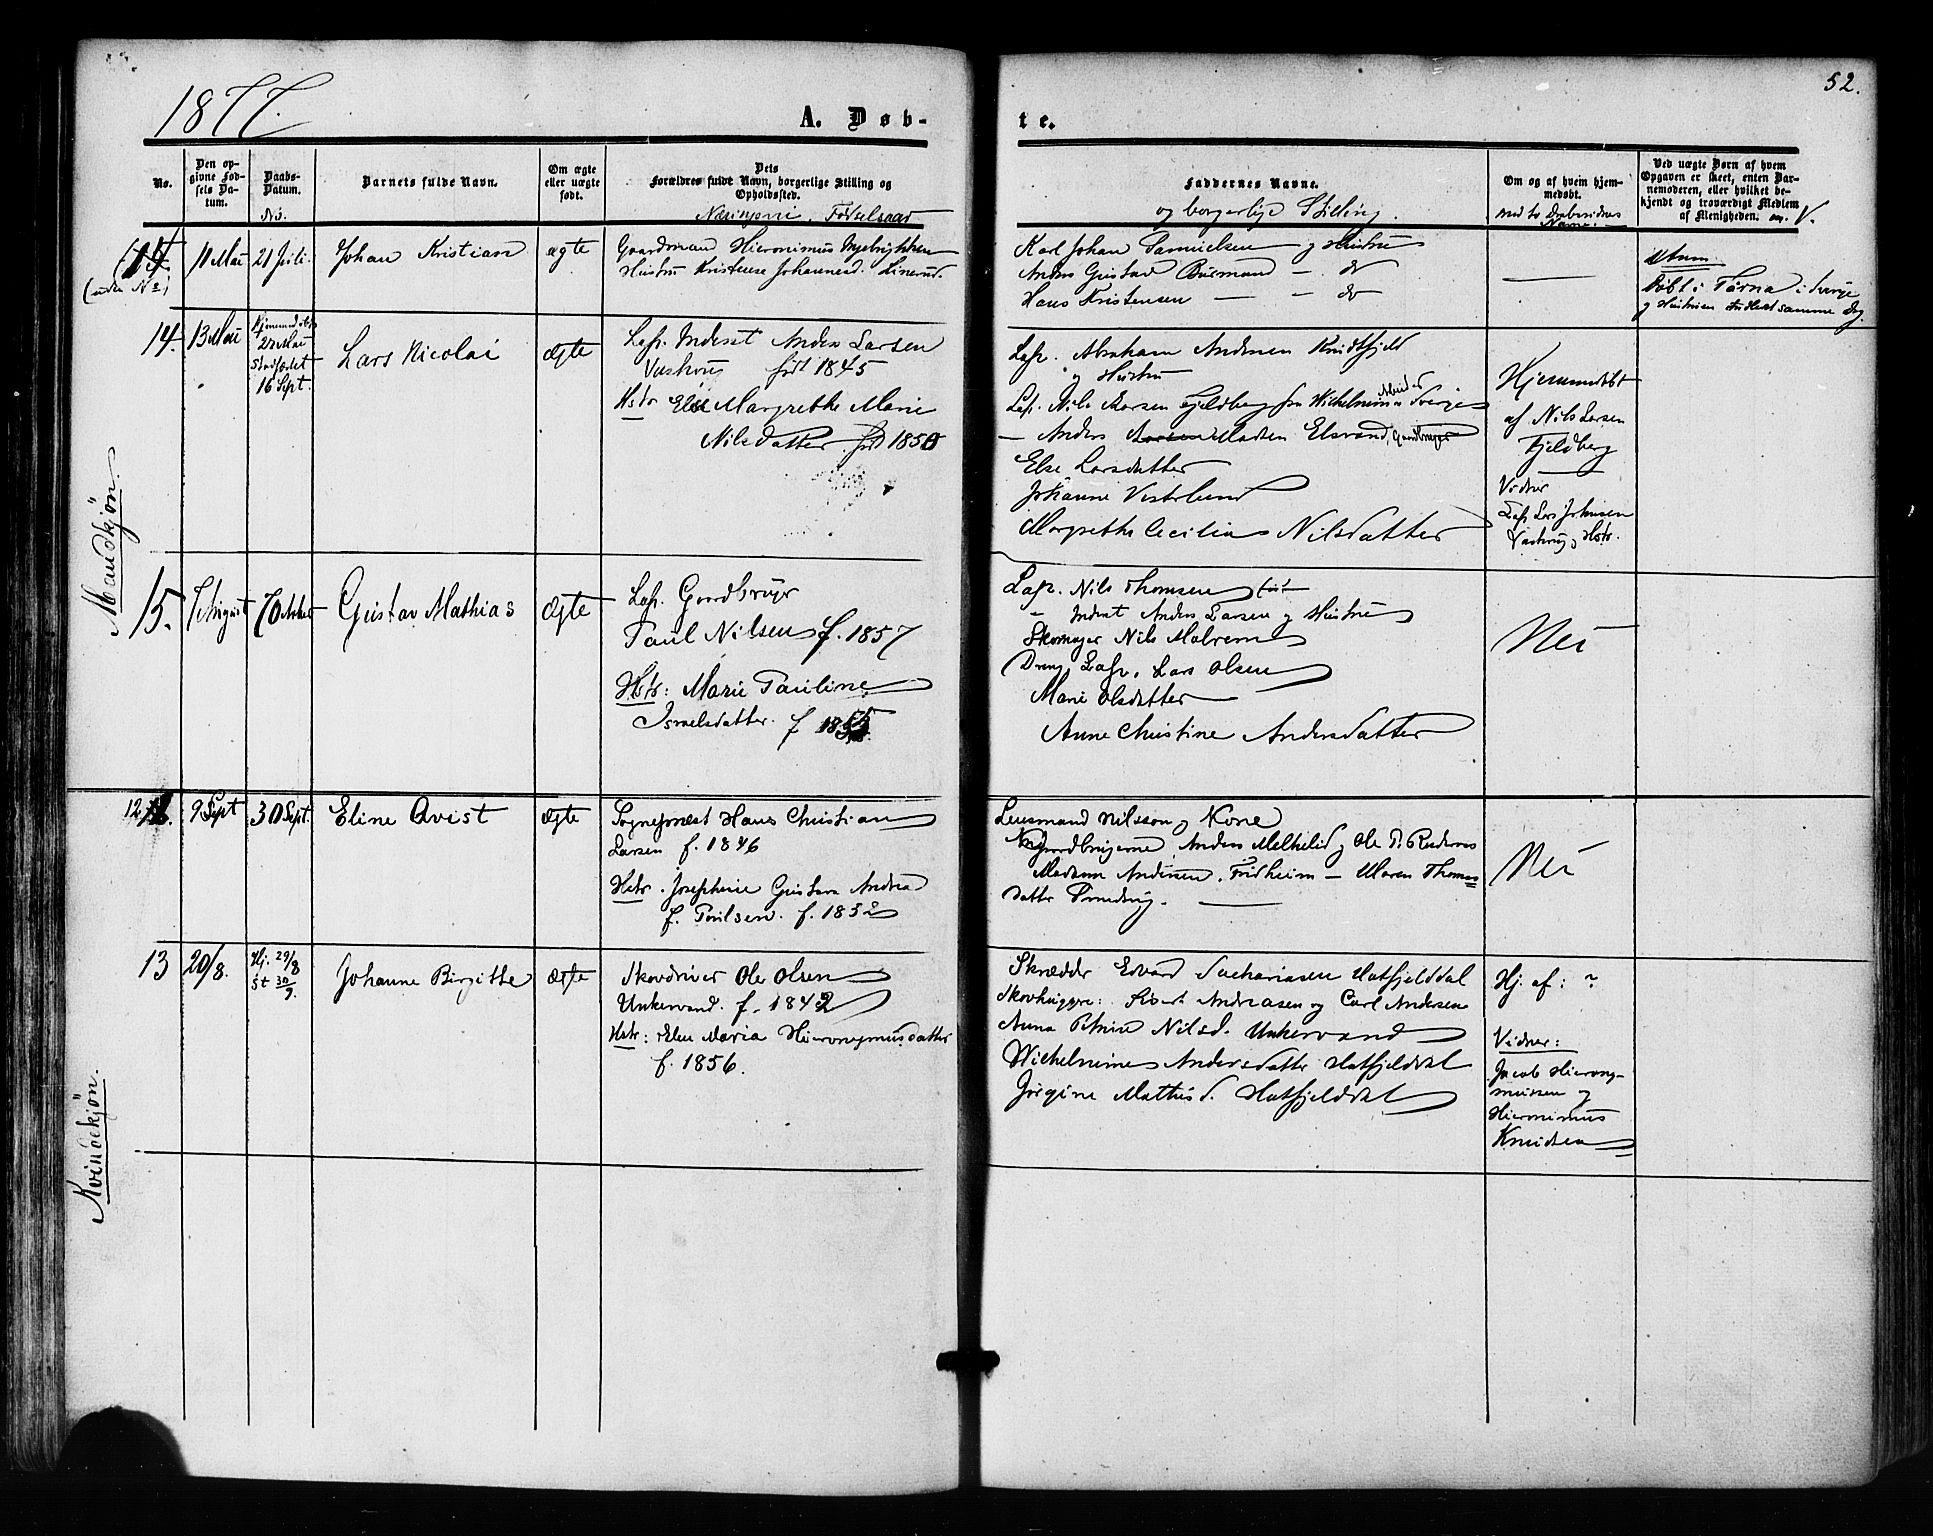 52.
1877.
A. Døb-
te.
No.
Den op-
givne Fød-
sels Da-
tum.
Daabs-
Datum.
Barnets fulde Navn.
Om ægte
eller uægte
født.
Dets
Forældres fulde Navn, borgerlige Stilling og
Opholdssted.
Fødselsaar
Faddernes Navne.
og borgerlige Stilling.
Om og af hvem hjem-
medøbt.
Ved uægte Børn af hvem
Opgaven er skeet, enten Bar-
nemoderen, eller hvilket be-
kjendt og troværdigt Medlem
af Menigheden.
Mandkjön.
(uden No)
11 Mai
21 Juli.
Johan Kristian
ægte
Gaardmand Hieronimus
Hustru Kristense Johannesd.
Karl Johan Samuelsen og Hustru
Anders Gustav — do
Hans Kristensen — — do
Anm.
Døbt i Tärna i Sverige
og Hustruen samme Dag
14.
13 Mai
Hjemmedöbt
27 Mai
Stadfæstet
16 Sept.
Lars Nicolai
Ægte
Lap. Inderst Anders Larsen
född 1845
Hstr Else Margrethe Marie
Nilsdatter född 1850
Lap. Abraham Andersen
og Hustru
Lap. Nils Larsen Fjeldberg fra Sverige
— Anders Larsen Madsen Elsvand, Gaardbruger
Else Larsdatter
Johanne Vesterlund
Margrethe Cecilia Nilsdatter
Hjemmedöbt
af Nils Larsen
Fjeldberg
Vidner
Lap. Lars Johansen
og Hstr.
15.
7 August
7 October
Gustav Mathias
Ægte
Lap. Gaardbruger
Paul Nilsen f. 1857
Hstr: Marie Pauline
Israelsdatter. f 1855
Lap. Nils Thomsen
— Inderst Anders Larsen og Hustru
Skomager Nils
Dreng Lap. Lars Olsen
Marie Olsdatter
Anne Christine Andersdatter
Nei
Kvindekjön.
12.
9 Sept
30 Sept.
Eline Qvist
Ægte
Sogneprest Hans Christian
Larsen f. 1846
Hstr. Josephine Gustava Andrea
f. Poulsen. f. 1852
Lensmand Nilsson og Kone
Gaardbrugerne Anders og Ole P.
Madam Andersen, Fridheim — Maren Thomas
datter
Nei
13
20/8.
Hj. 29/8
St 30/9.
Johanne Birgitte
Ægte
Skovdriver Ole Olsen
Unkervand. f. 1842
Hstr: Elen Maria Hieronymusdatter
f. 1856.
Skrædder Edvard Zachariasen Hatfjelddal
Skovhuggere: Sivert Andreasen og Carl Andersen
Anna Petrine Nilsd. Unkervand
Wilhelmine Andersdatter Hatfjelddal
Jörgine Mathisd. Hatfjelddal
Hj. af: ?
Vidner:
Jacob Hierony-
mussen og
Hieronimus
Knudsen